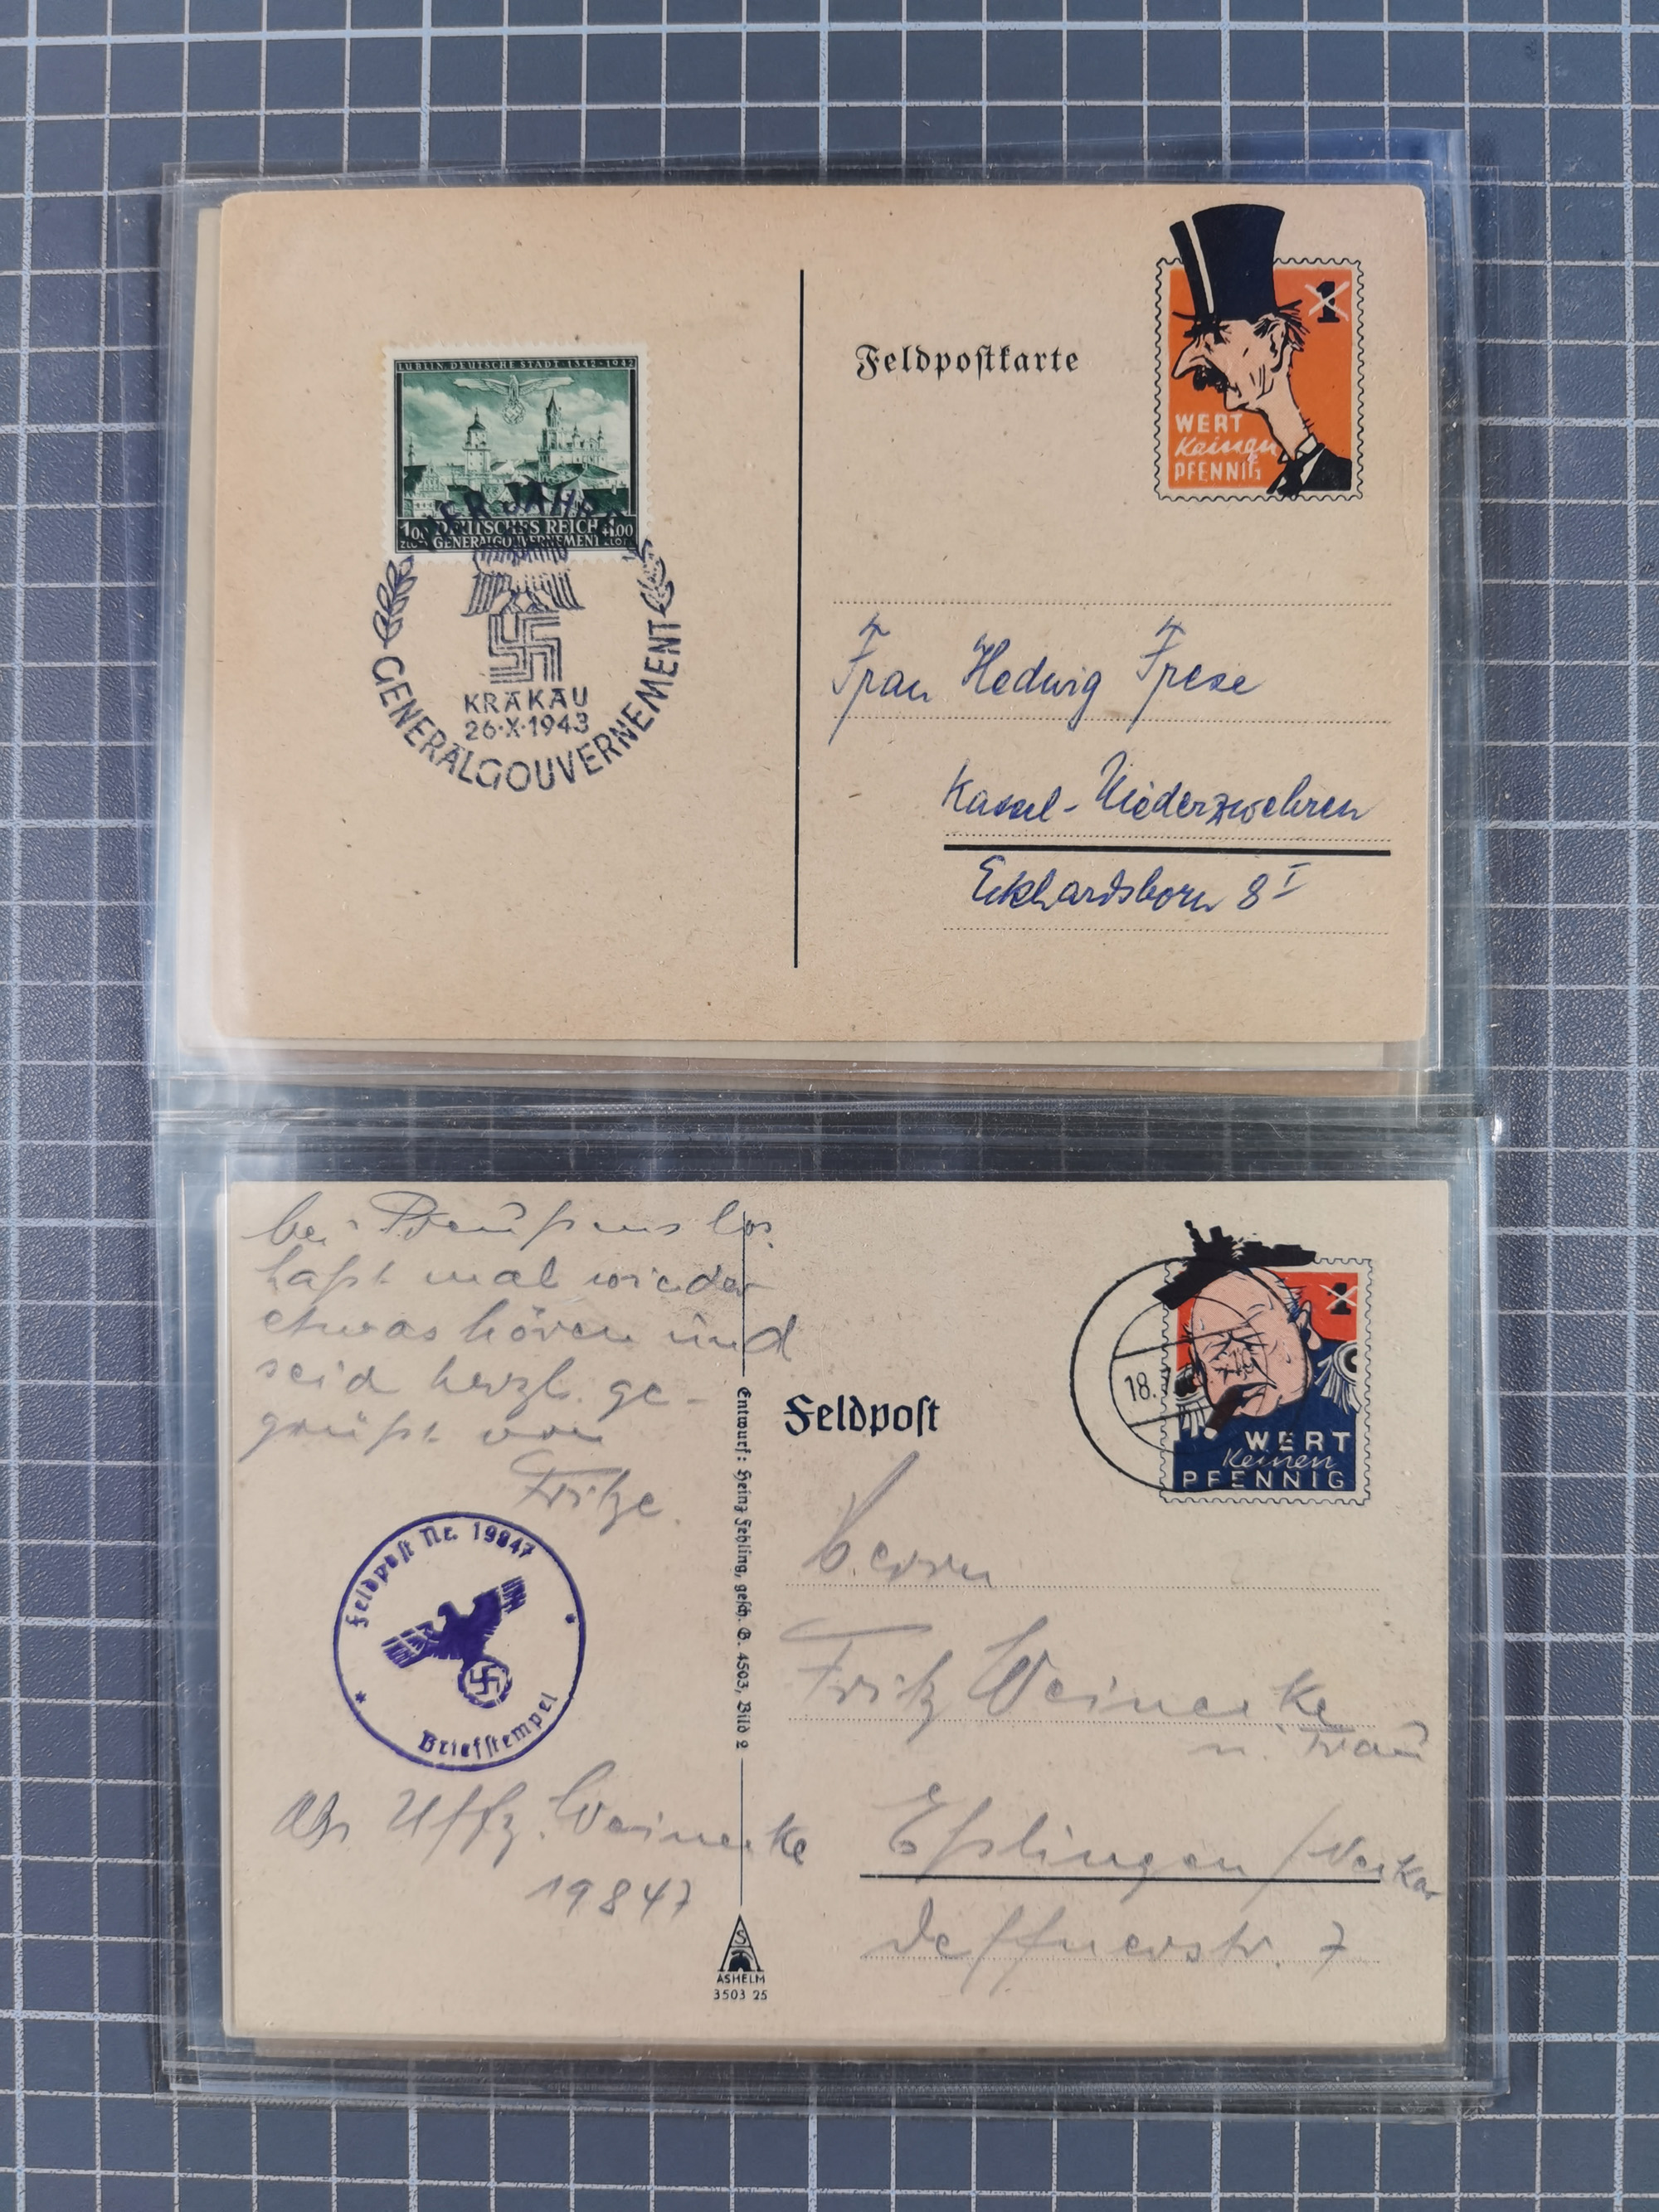 LUBLIN. DEUTSCHE STADT 1342-1942
DEUTSCHES REICH
GENERALGOUVERNEMENT
VIER JAHRE
GENERALGOUVERNEMENT
KRAKAU
26·X·1943
Feldpostkarte
1
WERT
Keinen
PFENNIG
Frau Hedwig Frese
Kassel-Niederzwehren
Eckhardsborn 8 I
bei
laßt mal wieder
etwas hören und
seid herzl. ge-
grüßt von
Fritze.
Feldpost Nr. 19847
Briefstempel
Abs Uffz. Weinecke
19847
Entwurf: Heinz Fehling, gesch. G. 4503, Bild 2
ASHELM
3503 25
Feldpost
18.
1
WERT
Keinen
PFENNIG
Herrn
Fritz Weinecke
u. Frau
Eßlingen / Neckar
Deffnerstr. 7